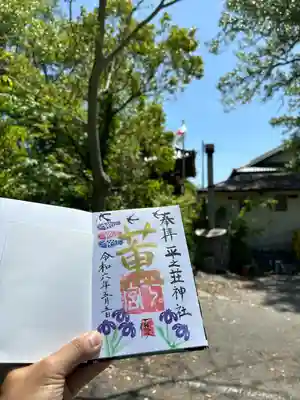 奉拝 平之荘神社
菫
宮
令和六年五月五日